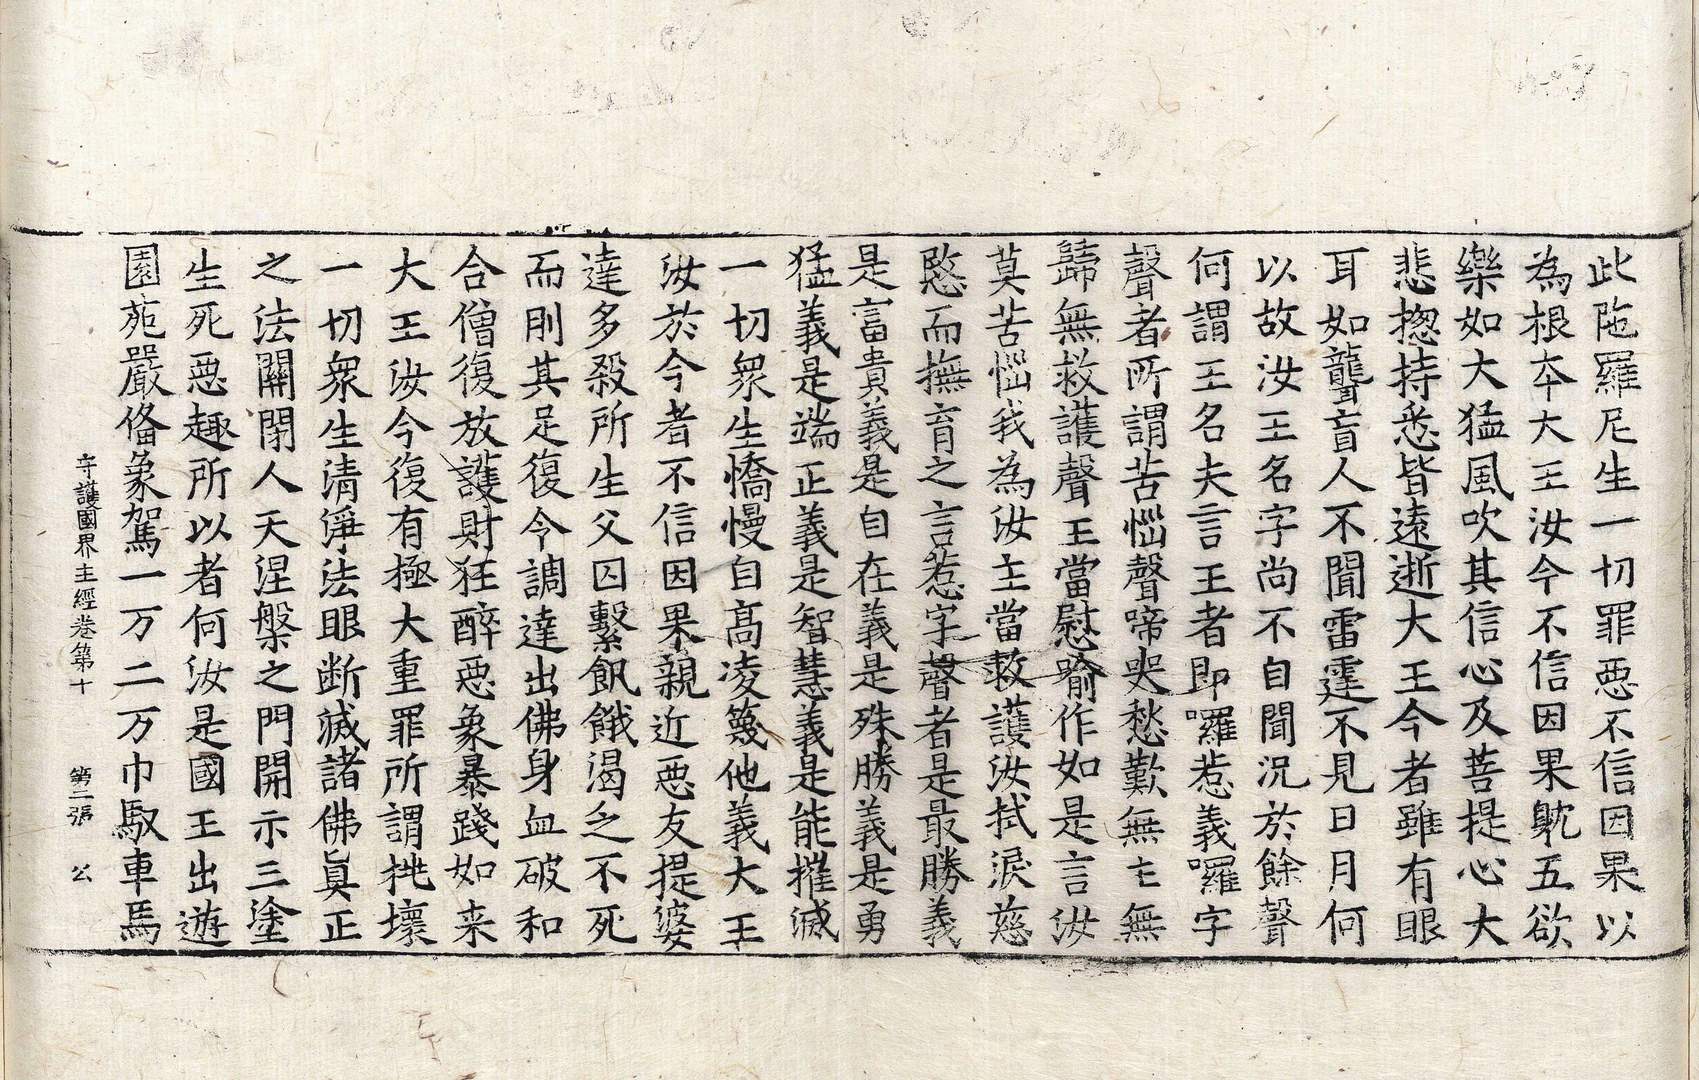 此陁羅尼生一切罪惡不信因果以
為根夲大王汝今不信因果躭五欲
樂如大猛風吹其信心及菩提心大
悲揔持悉皆遠逝大王今者雖有眼
耳如聾盲人不聞雷霆不見日月何
以故汝王名字尚不自聞況於餘聲
何謂王名夫言王者即囉惹義囉字
聲者所謂苦惱聲啼哭愁歎無主無
歸無救護聲王當慰喻作如是言汝
莫苦惱我為汝主當救護汝拭淚慈
愍而撫育之言惹字聲者是最勝義
是富貴義是自在義是殊勝義是勇
猛義是端正義是智慧義是能摧滅
一切衆生憍慢自髙凌篾他義大王
汝於今者不信因果親近惡友提婆
達多殺所生父囚繫飢餓渴乏不死
而刖其足復令調達出佛身血破和
合僧復放護財狂醉惡象暴踐如来
大王汝今復有極大重罪所謂𣬉壞
一切衆生清淨法眼断滅諸佛眞正
之法關閉人天涅槃之門開示三塗
生死惡趣所以者何汝是國王出遊
園苑嚴俻象駕一万二万巾馭車馬
守護國界主經卷第十 第二張 公